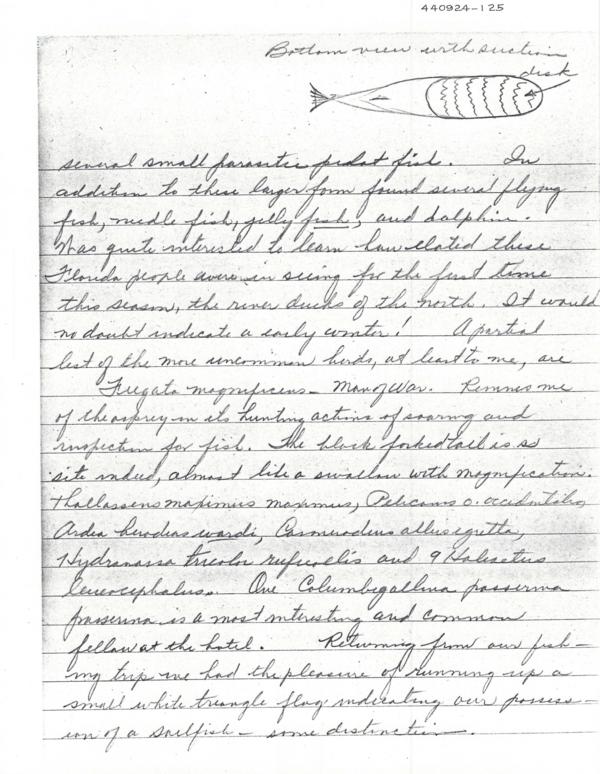 440924-125
Bottom view with suction
disk
several small parasitic pedat fish. In
addition to these larger form found several flying
fish, needle fish, jelly fish, and dolphin.
Was quite interested to learn how elated these
Florida people were in seeing for the first time
this season, the river ducks of the north. It would
no doubt indicate a early winter! A partial
list of the more uncommon birds, at least to me, are
Fregata magnificens - Man of War. Reminds me
of the osprey in its hunting actions of soaring and
inspection for fish. The black forked tail is a
site indeed, almost like a swallow with magnification.
Thallasseus maximus maximus, Pelicanus o. occidentalis,
Ardea herodias wardi, Casmerodius albus egretta,
Hydranassa tricolor ruficollis and 9 Haliaetus
leucocephalus. One Columbigallina passerina
passerina is a most interesting and common
fellow at the hotel. Returning from our fish-
ing trip we had the pleasure of running up a
small white triangle flag indicating our possess-
ion of a sailfish - some distinction.